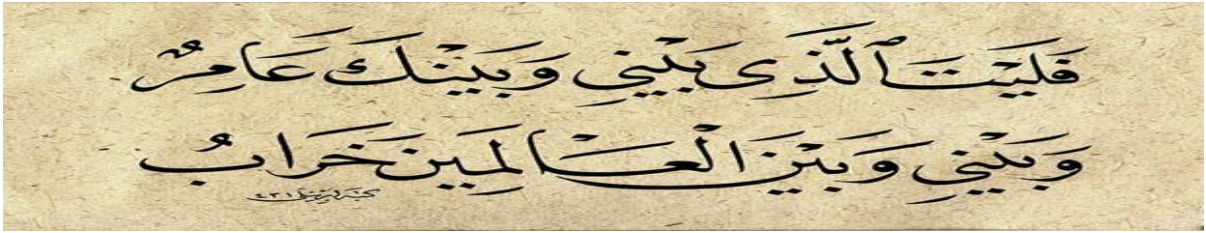 فَلَيْتَ ٱلَّذِى بَيْنِي وَبَيْنَكَ عَامِرٌ
وَبَيْنِي وَبَيْنَ الْعَالَمِينَ خَرَابُ